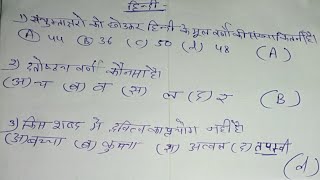 हिन्दी
1) संयुक्ताक्षरों को छोड़कर हिन्दी के मूल वर्णों की संख्या कितनी है।
(A) 44 (B) 36 (C) 50 (d) 48 (A)
2) दंतोष्ठ्य वर्ण कौनसा है।
(अ) च (ब) व (स) ल (द) र (B)
3) किस शब्द में द्वित्व का प्रयोग नहीं है।
(अ) बच्चा (ब) कुत्ता (स) (द) तपस्वी
(d)